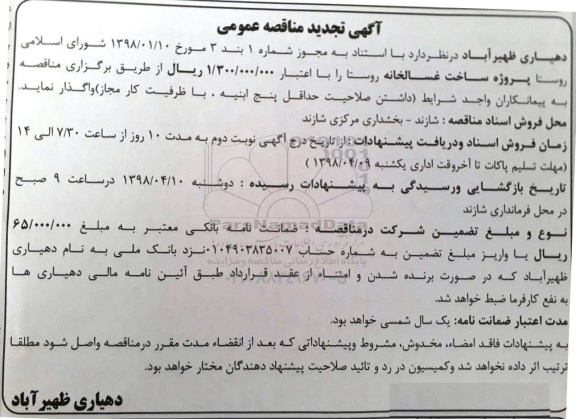 آگهی تجدید مناقصه عمومی
دهیاری ظهیرآباد درنظردارد با استناد به مجوز شماره ۱ بند ۳ مورخ ۱۳۹۸/۰۱/۱۰ شورای اسلامی
روستا پروژه ساخت غسالخانه روستا را با اعتبار ۱/۳۰۰/۰۰۰/۰۰۰ ریال از طریق برگزاری مناقصه
به پیمانکاران واجد شرایط (داشتن صلاحیت حداقل پنج ابنیه ، با ظرفیت کار مجاز)واگذار نماید.
محل فروش اسناد مناقصه : شازند - بخشداری مرکزی شازند
زمان فروش اسناد ودریافت پیشنهادات : از تاریخ درج آگهی نوبت دوم به مدت ۱۰ روز از ساعت ۷/۳۰ الی ۱۴
(مهلت تسلیم پاکات تا آخروقت اداری یکشنبه ۱۳۹۸/۰۴/۰۹ )
تاریخ بازگشایی ورسیدگی به پیشنهادات رسیده : دوشنبه ۱۳۹۸/۰۴/۱۰ درساعت ۹ صبح
در محل فرمانداری شازند
نوع و مبلغ تضمین شرکت درمناقصه : ضمانت نامه بانکی معتبر به مبلغ ۶۵/۰۰۰/۰۰۰
ریال یا واریز مبلغ تضمین به شماره حساب ۰۱۰۴۹۰۳۸۳۵۰۰۷ نزد بانک ملی به نام دهیاری
ظهیرآباد که در صورت برنده شدن و امتناع از عقد قرارداد طبق آئین نامه مالی دهیاری ها
به نفع کارفرما ضبط خواهد شد.
مدت اعتبار ضمانت نامه: یک سال شمسی خواهد بود.
به پیشنهادات فاقد امضاء، مخدوش، مشروط وپیشنهاداتی که بعد از انقضاء مدت مقرر درمناقصه واصل شود مطلقا
ترتیب اثر داده نخواهد شد وکمیسیون در رد و تائید صلاحیت پیشنهاد دهندگان مختار خواهد بود.
دهیاری ظهیرآباد